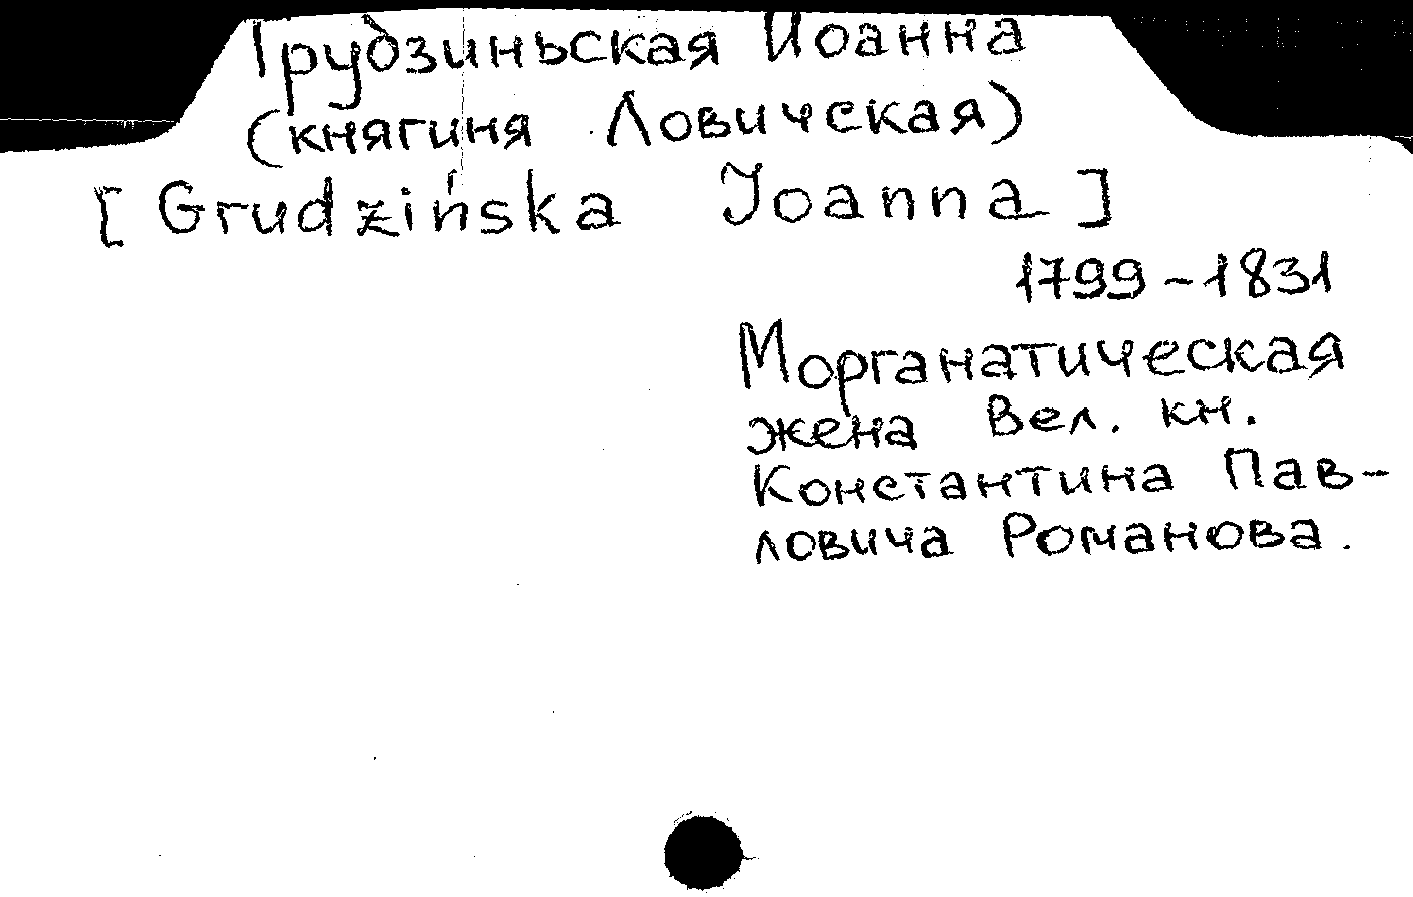 Грудзиньская Иоанна
(княгиня Ловичская)
[ Grudzińska Joanna ]
1799-1831
Морганатическая
жена Вел. кн.
Константина Пав-
ловича Романова.